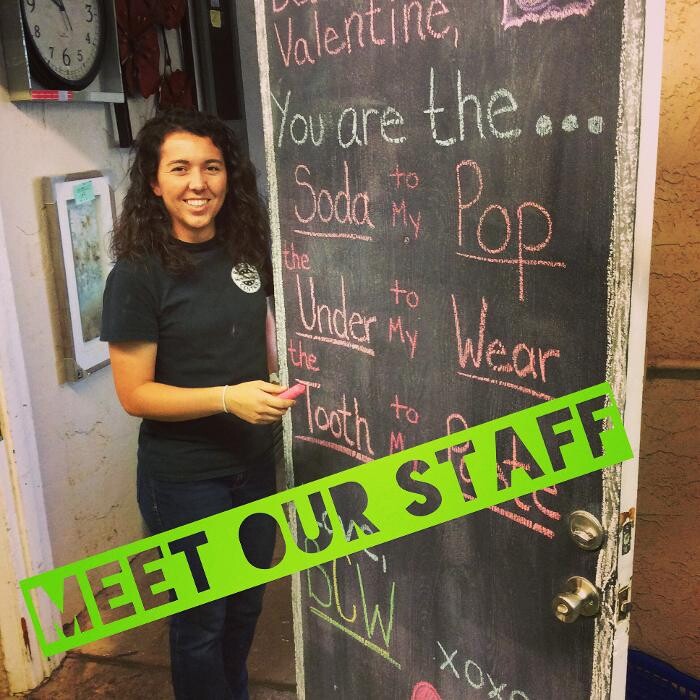 Valentine,
You are the...
Soda to My Pop
the
Under to My Wear
the
Tooth to
BCW
xoxo
MEET OUR STAFF